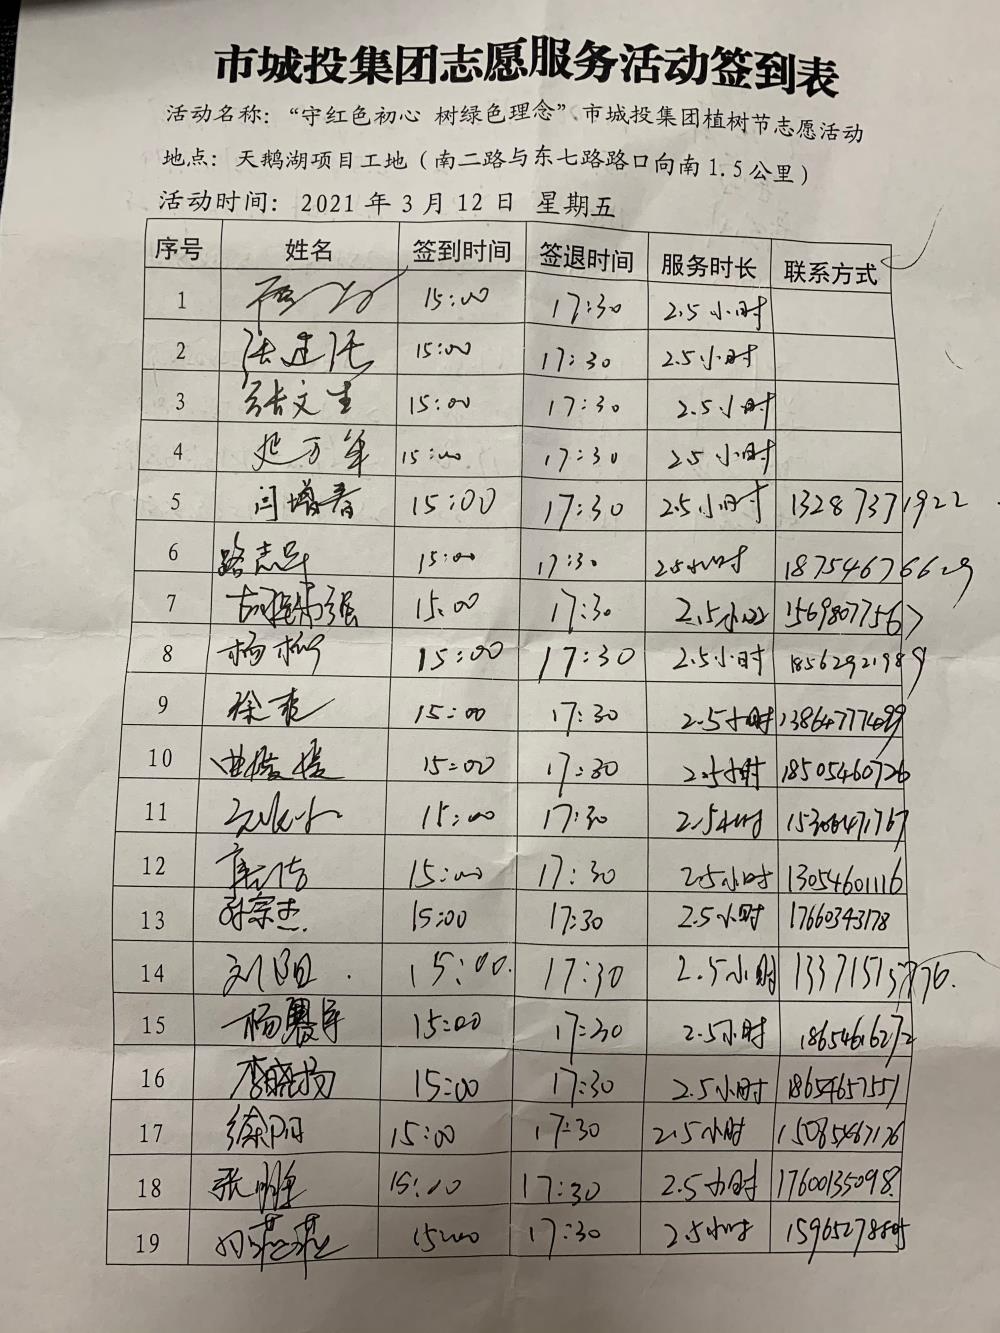 市城投集团志愿服务活动签到表
活动名称：“守红色初心 树绿色理念”、市城投集团植树节志愿活动
地点：天鹅湖项目工地（南二路与东七路路口向南1.5公里）
活动时间：2021年3月12日 星期五
序号 姓名 签到时间 签退时间 服务时长 联系方式
1 15:00 17:30 2.5小时
2 15:00 17:30 2.5小时
3 张文生 15:00 17:30 2.5小时
4 15:00 17:30 2.5小时
5 闫增春 15:00 17:30 2.5小时 13287371922
6 15:00 17:30 2.5小时 18754676629
7 15:00 17:30 2.5小时 15698077567
8 杨柳 15:00 17:30 2.5小时 18562921989
9 徐爽 15:00 17:30 2.5小时
10 曲媛媛 15:00 17:30 2.5小时 18505460726
11 15:00 17:30 2.5小时
12 15:00 17:30 2.5小时 13054601116
13 孙宗杰 15:00 17:30 2.5小时 17660343178
14 刘阳 15:00 17:30 2.5小时
15 15:00 17:30 2.5小时 18654616272
16 李晓扬 15:00 17:30 2.5小时 18654657551
17 徐阳 15:00 17:30 2.5小时
18 15:00 17:30 2.5小时 17600135098
19 15:00 17:30 2.5小时